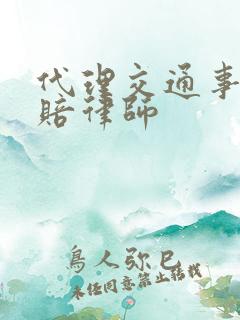 代理交通事
赔律师
鳥人弥巳
未经同意禁止转载